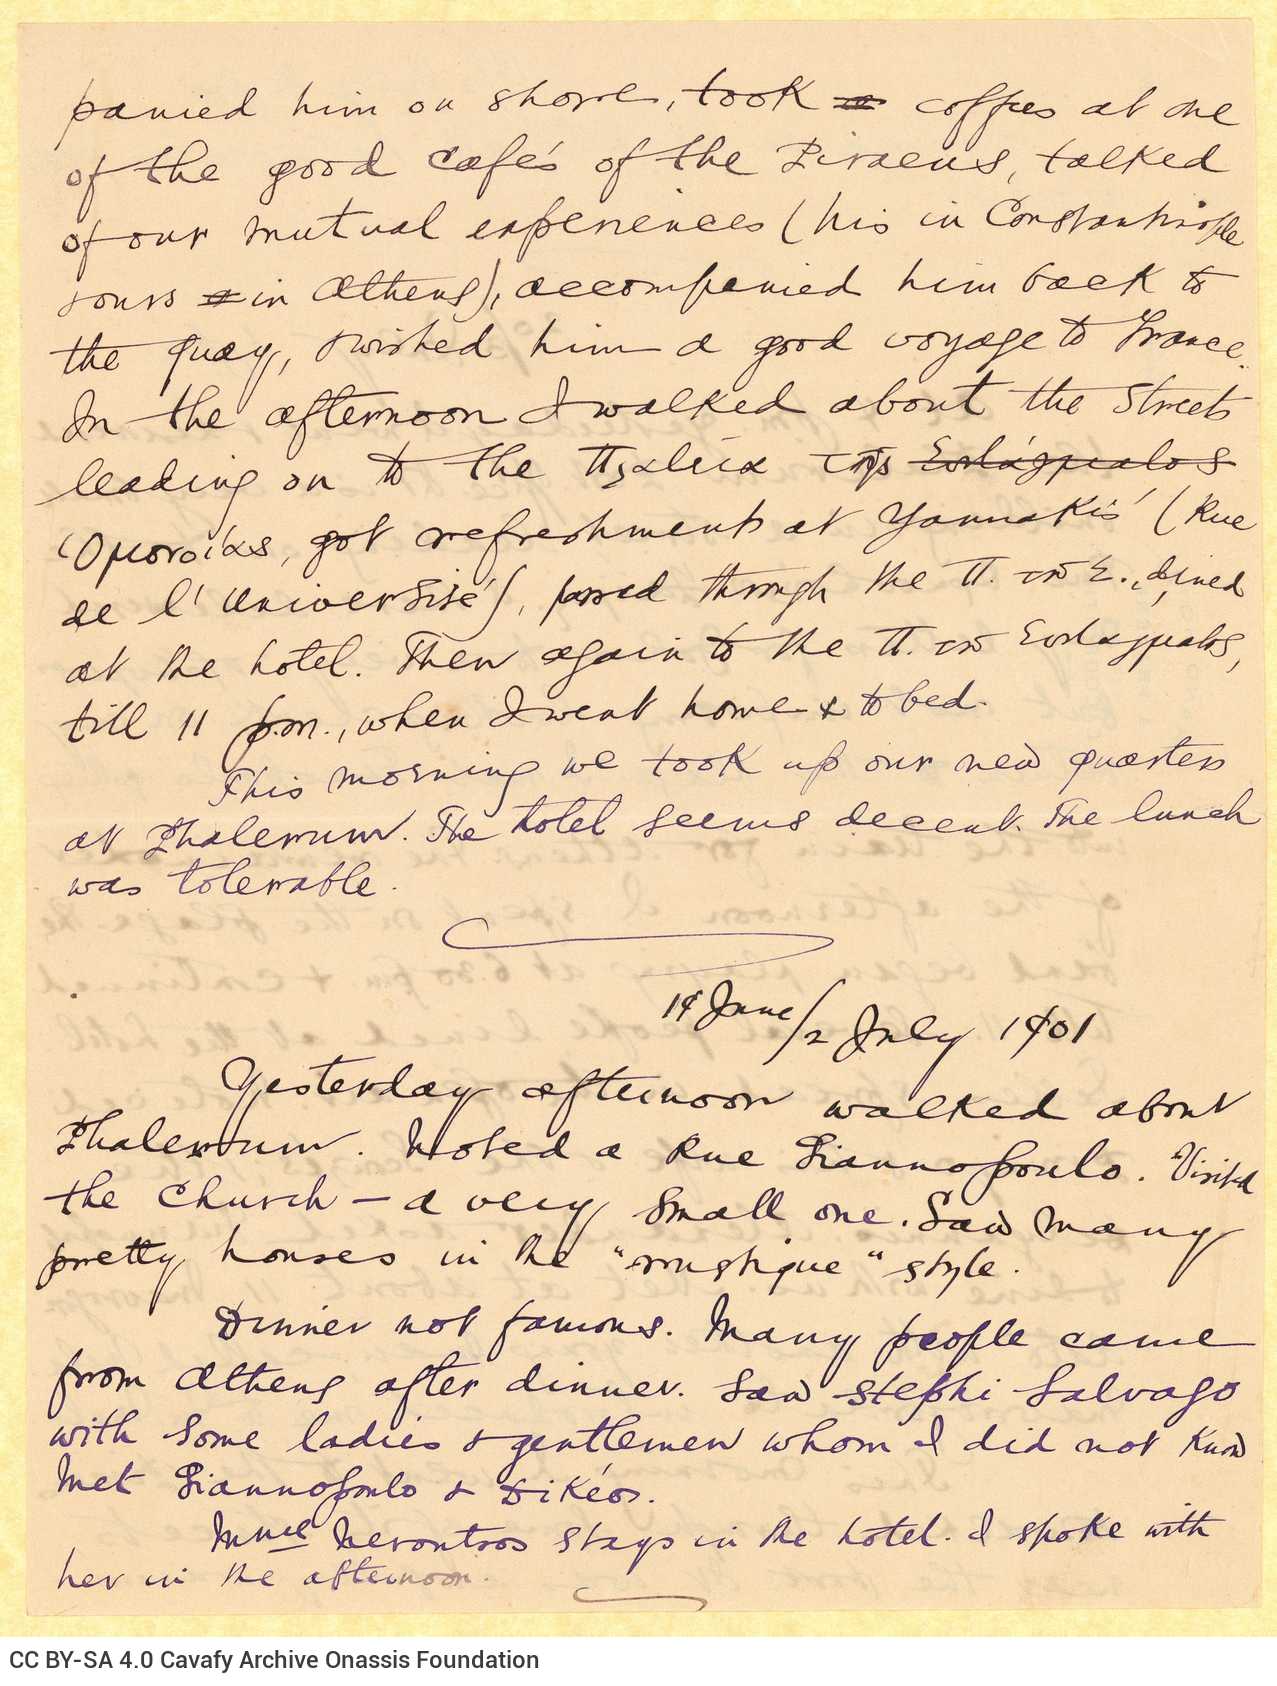 panied him on shore, took a coffees at one
of the good cafés of the Piraeus, talked
of our mutual experiences (his in Constantinople
ours in Athens), accompanied him back to
the quay, & wished him a good voyage to France.
In the afternoon I walked about the Streets
leading on to the Πλατεία της Συντάγματος
Ὁμονοίας, got refreshments at Yannakis' (Rue
de l' Université), passed through the Π. τοῦ Σ., dined
at the hotel. Then again to the Π. τοῦ Συντάγματος,
till 11 p.m., when I went home & to bed.
This morning we took up our new quarters
at Phalerum. The hotel seems decent. The lunch
was tolerable.
19 June/2 July 1901
Yesterday afternoon walked about
Phalerum. Noted a Rue Giannopoulo. Visited
the Church — a very small one. Saw many
pretty houses in the "rustique" style.
Dinner not famous. Many people came
from Athens after dinner. Saw Stephi Salvago
with some ladies & gentlemen whom I did not know
Met Giannopoulo & Dikéos.
Mme Nerontsos stays in the hotel. I spoke with
her in the afternoon.
CC BY-SA 4.0 Cavafy Archive Onassis Foundation